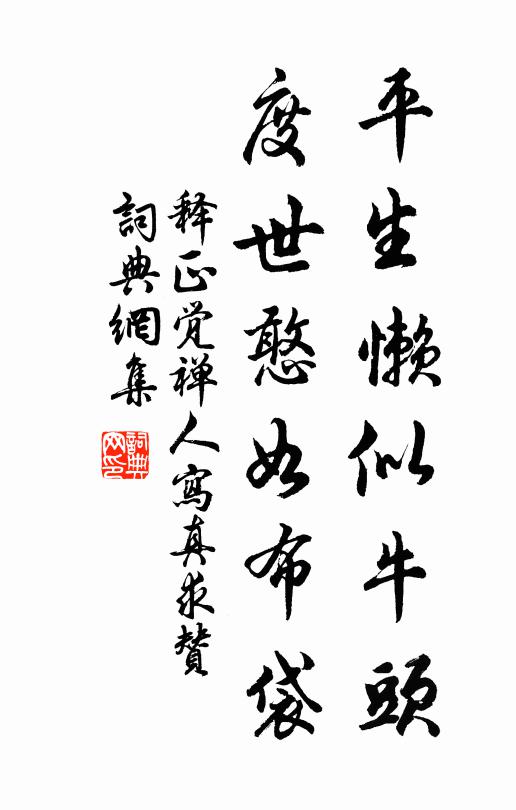 平生懒似牛頭
度世憨如布袋
释正觉禅人寫真求賛
詞典網集
詞典网印